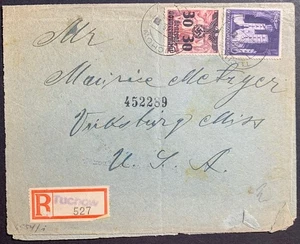 30 30
Mr
Maurice Metzger
452289
Vicksburg Miss
U. S. A.
R TUCHOW
527